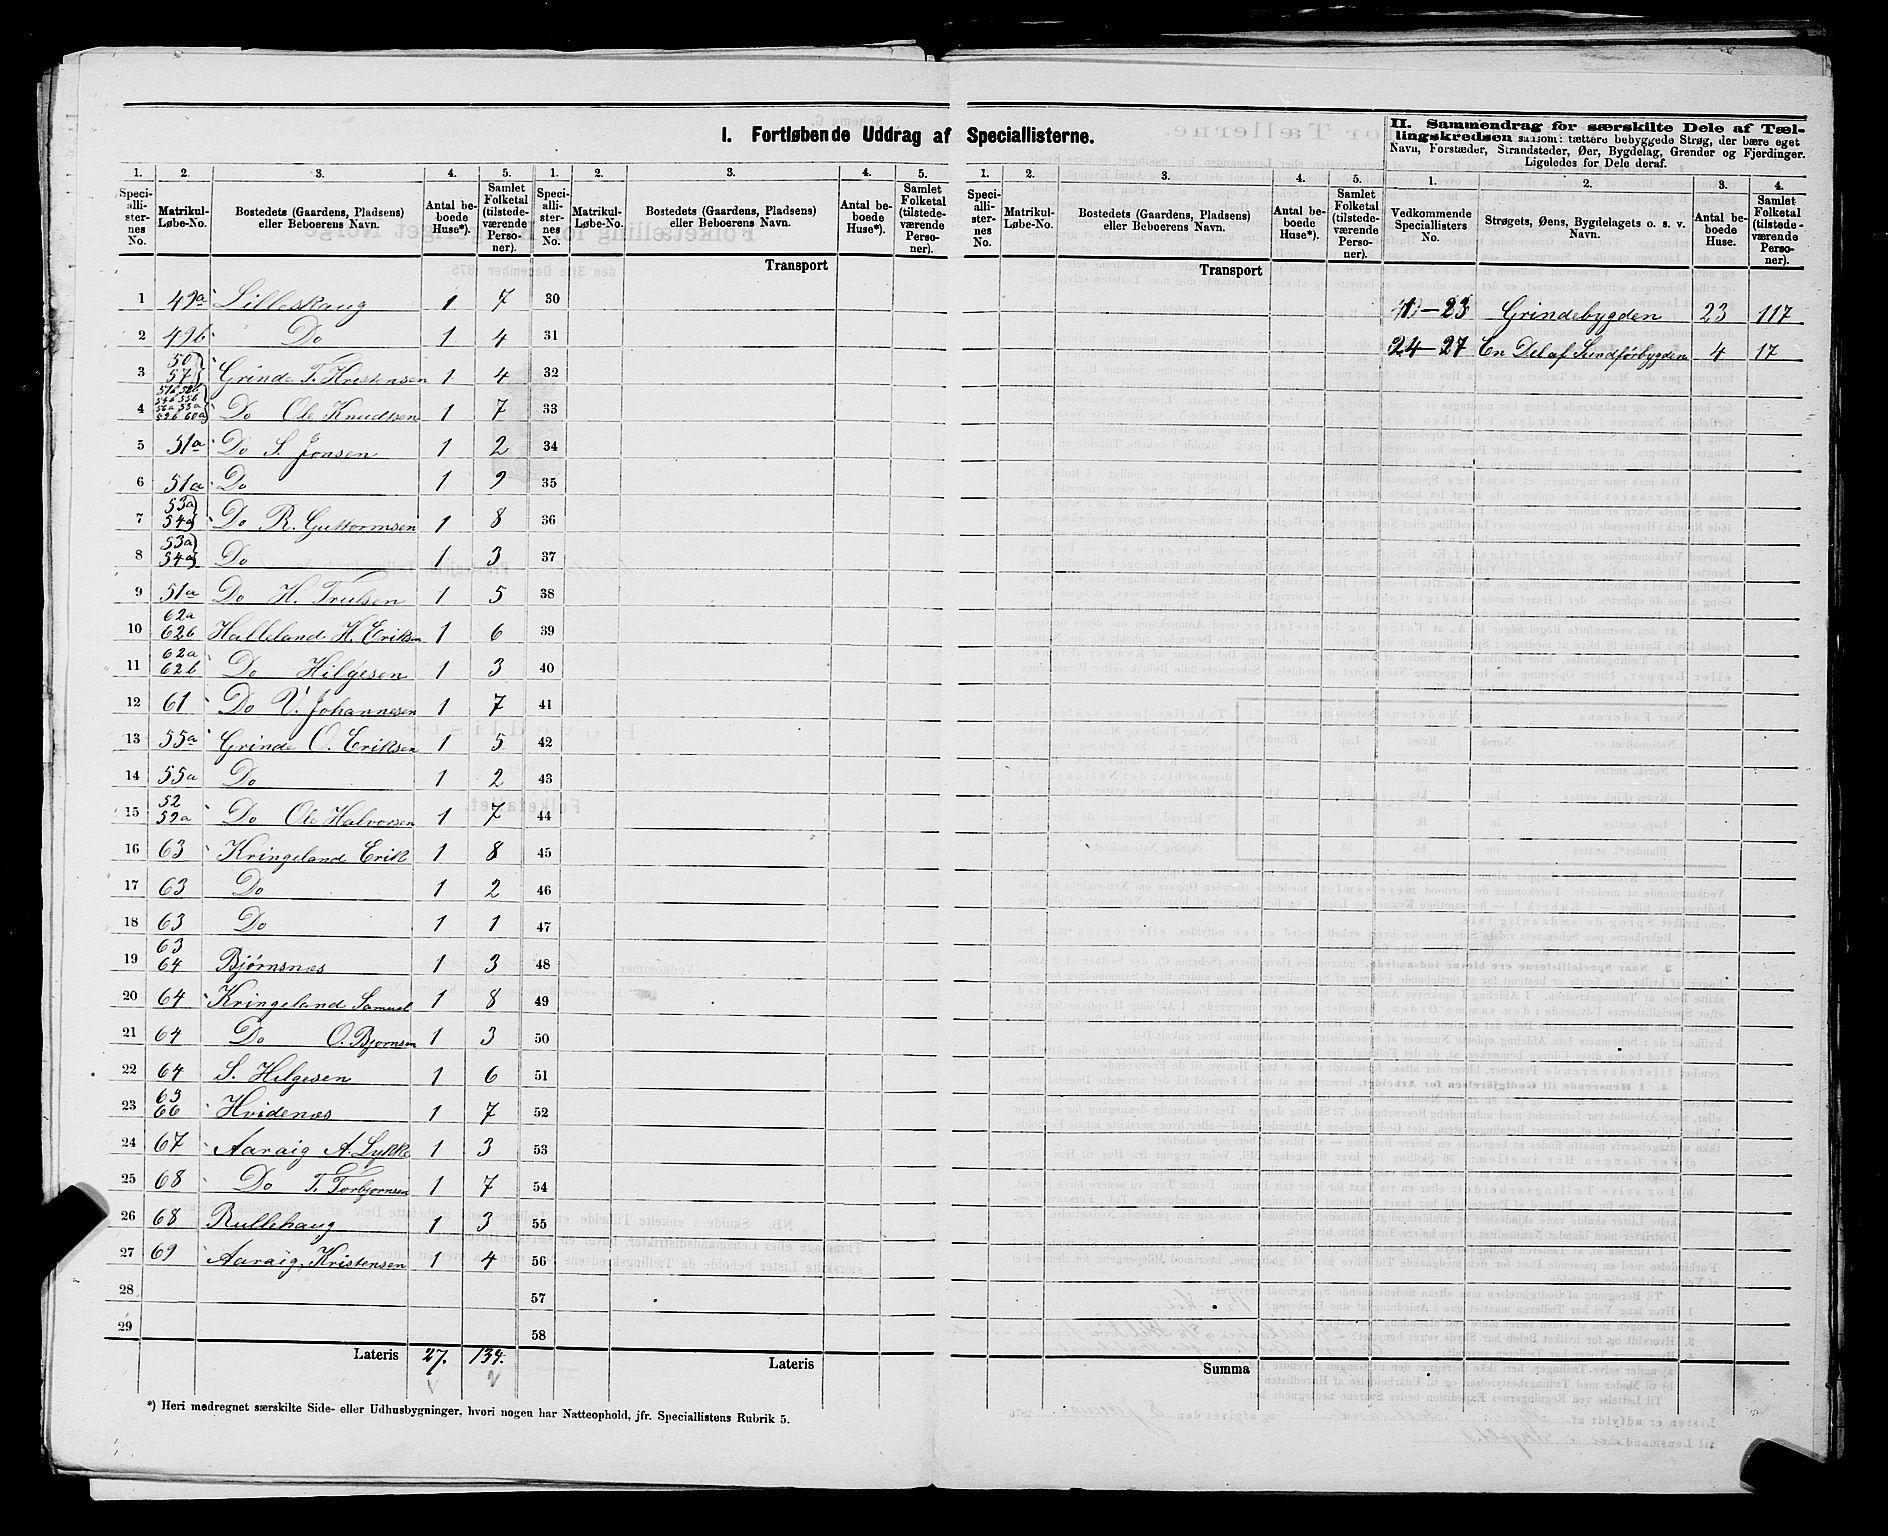 I. Fortløbende Uddrag af Speciallisterne.
II. Sammendrag for særskilte Dele af Tællingskredsen saasom: tættere bebyggede Strøg, der bære eget Navn, Forstæder, Strandsteder, Øer, Bygdelag, Grender og Fjerdinger. Ligeledes for Dele deraf.
1. 2. 3. 4. 5. 1. 2. 3. 4. 5. 1. 2. 3. 4. 5. 1. 2. 3. 4.
Speciallisternes No. Matrikul-Løbe-No. Bostedets (Gaardens, Pladsens) eller Beboerens Navn. Antal beboede Huse*). Samlet Folketal (tilstedeværende Personer).
Speciallisternes No. Matrikul-Løbe-No. Bostedets (Gaardens, Pladsens) eller Beboerens Navn. Antal beboede Huse*). Samlet Folketal (tilstedeværende Personer).
Speciallisternes No. Matrikul-Løbe-No. Bostedets (Gaardens, Pladsens) eller Beboerens Navn. Antal beboede Huse*). Samlet Folketal (tilstedeværende Personer).
Vedkommende Speciallisters No. Strøgets, Øens, Bygdelagets o. s. v. Navn. Antal beboede Huse. Samlet Folketal (tilstedeværende Personer).
Transport Transport
1 49a Lilleskaug 1 7 30
1-23 Grindebygden 23 117
2 49b Do 1 4 31
24-27 En Del af Sundførbygden 4 17
3 50 57 Grinde T. Kristensen 1 4 32
4 Do Ole Knudtsen 1 7 33
5 51a Do S. Jonsen 1 2 34
6 51a Do 1 9 35
7 53a 54a Do R. Guttormsen 1 8 36
8 53a 54a Do 1 3 37
9 51a Do H. Trulsen 1 5 38
10 62a 62b Halleland H. Eriksen 1 6 39
11 62a 62b Do Hilgesen 1 3 40
12 61 Do V. Johannesen 1 7 41
13 55a Grinde O. Eriksen 1 5 42
14 55a Do 1 2 43
15 52 59a Do Ole Halvorsen 1 7 44
16 63 Kringeland Erik 1 8 45
17 63 Do 1 2 46
18 63 Do 1 1 47
19 63 64 Bjørnsnæs 1 3 48
20 64 Kringeland Samuel 1 8 49
21 64 Do O. Bjørnsen 1 3 50
22 64 S. Hilgesen 1 6 51
23 65 66 Hvidenæs 1 7 52
24 67 Aaraig A. Lykke 1 3 53
25 68 Do T. Torbjørnsen 1 7 54
26 68 Rullehaug 1 3 55
27 69 Aaraig, Kristensen 1 4 56
28 57
29 58
Lateris 27. 134. Lateris Summa
*) Heri medregnet særskilte Side- eller Udhusbygninger, hvori nogen har Natteophold, jfr. Speciallistens Rubrik 5.